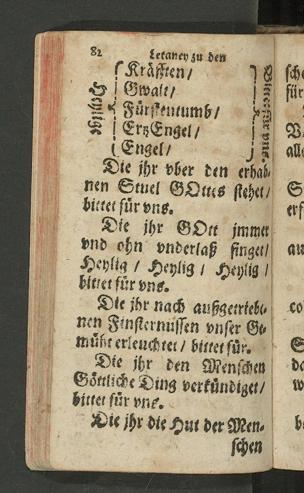 82 Letaney zu den
Heylige
Kräfften /
Gwalt /
Fürstentumb /
ErtzEngel /
Engel /
Bittet für vns.
Die jhr vber den erhab-
nen Stuel GOttes stehet /
bittet für vns.
Die jhr GOtt jmmer
vnd ohn vnderlaß singet /
Heylig / Heylig / Heylig /
bittet für vns.
Die jhr nach außgetriebe-
nen Finsternussen vnser Ge-
müht erleuchtet / bittet für.
Die jhr den Menschen
Göttliche Ding verkündiget /
bittet für vns.
Die jhr die Hut der Men-
schen